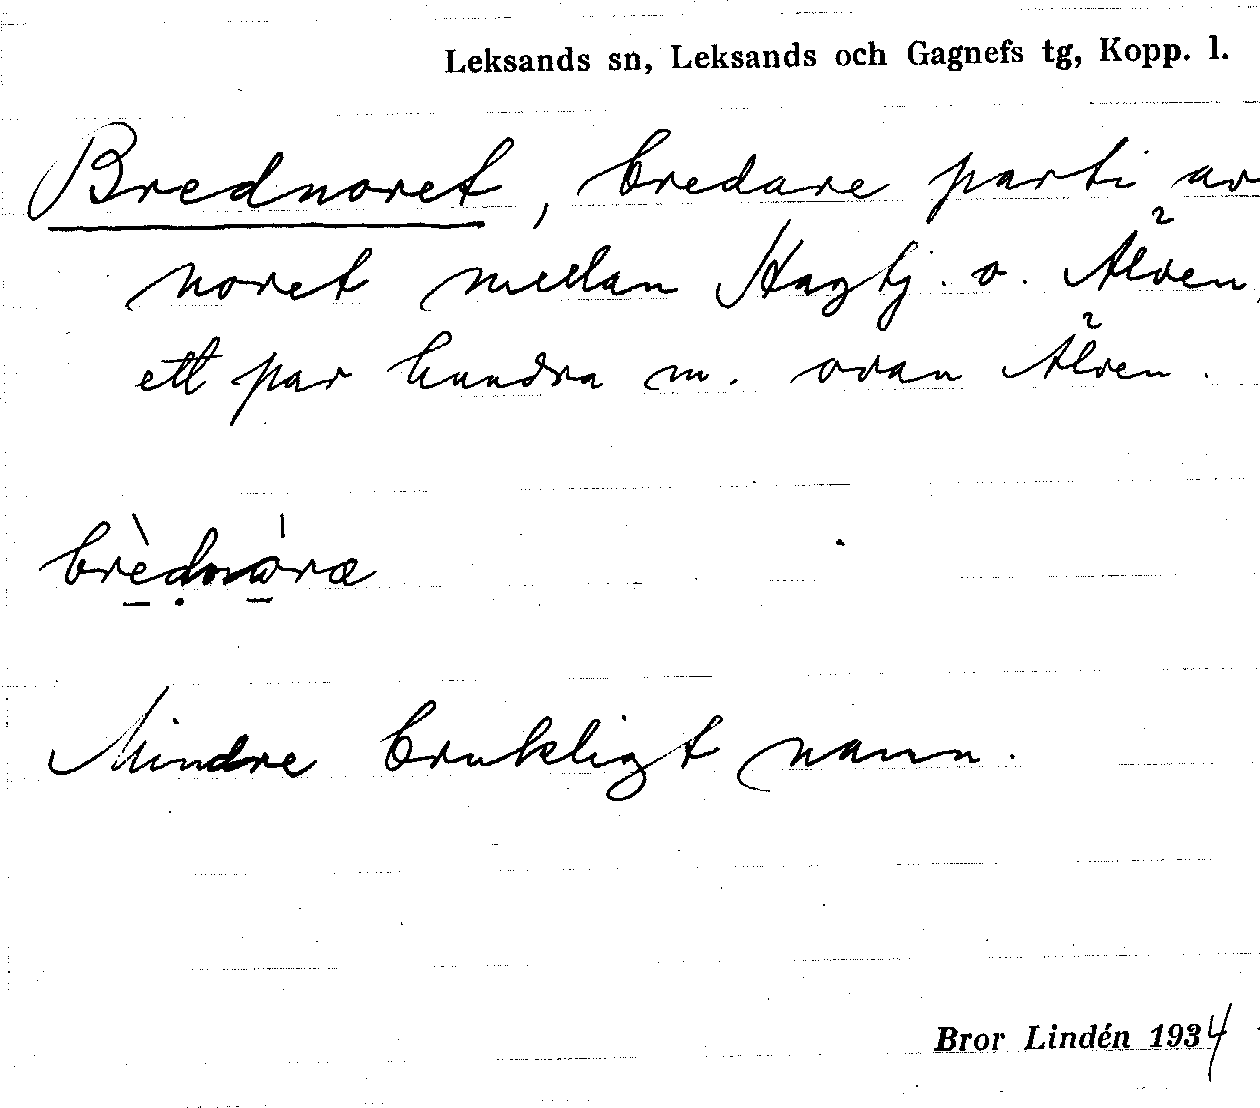 Leksands sn, Leksands och Gagnefs tg, Kopp. l.
Brednoret, bredare parti av
noret mellan Hagtj. o. Ålven,
ett par hundra m. ovan Ålven.
brèdnάræ
Mindre brukligt namn.
Bror Lindén 1934